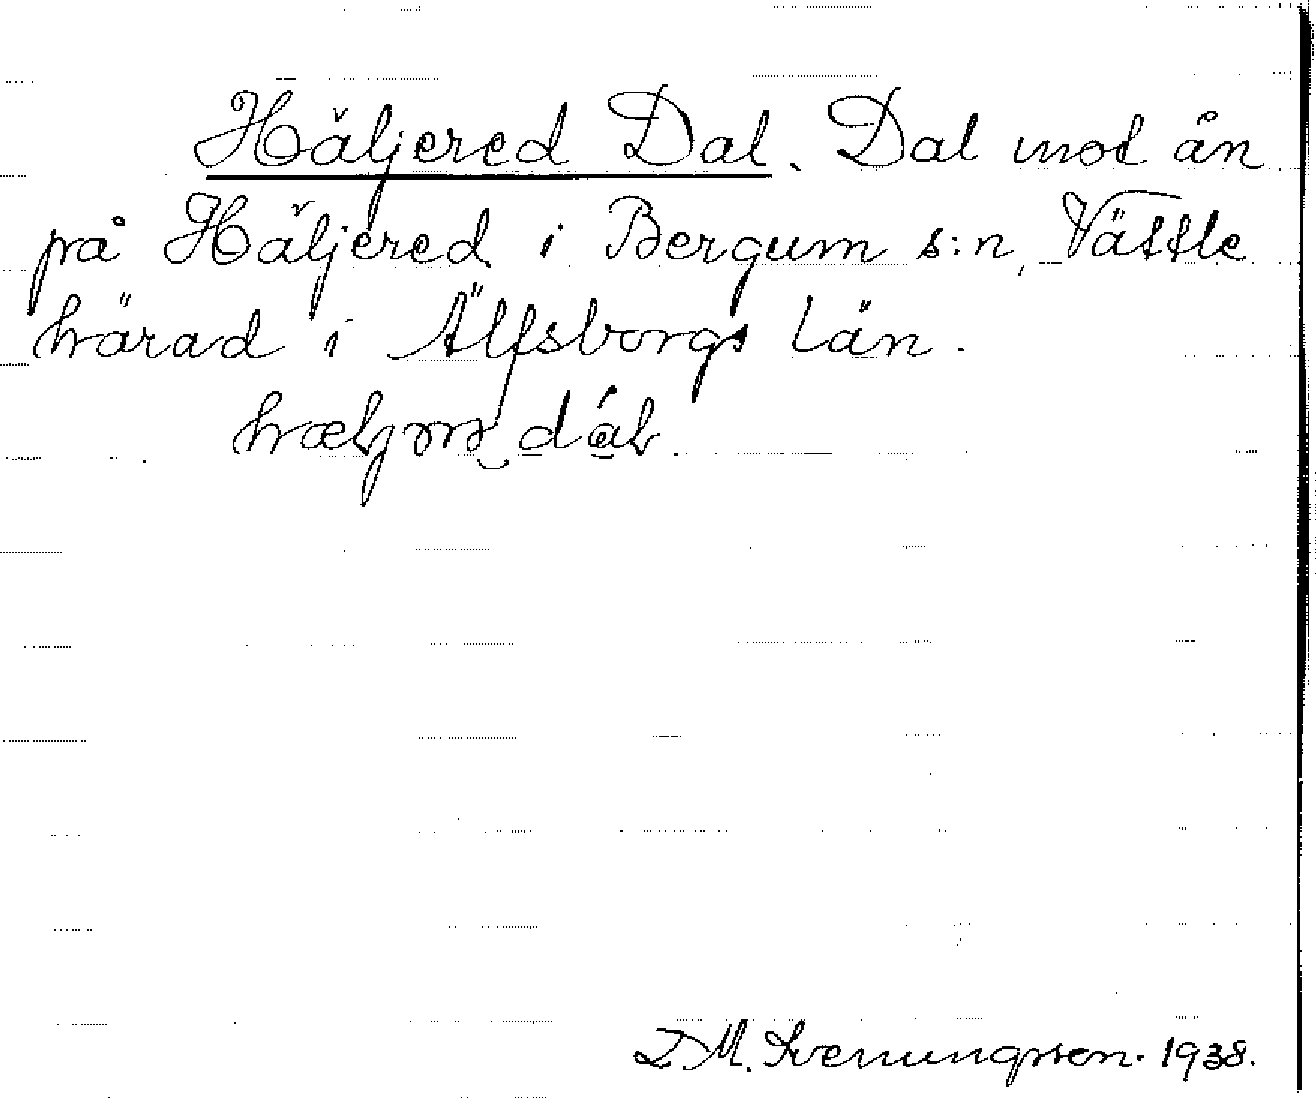 Häljered Dal. Dal mot ån
på Häljered i Bergum s:n, Vättle
härad i Älfsborgs Län.
D. M. Svenungsson. 1938.